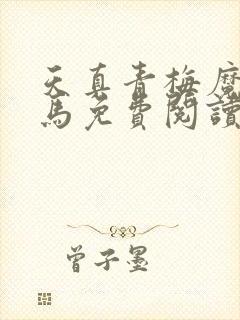 天真青梅魔
馬免費閱讀
曾子墨